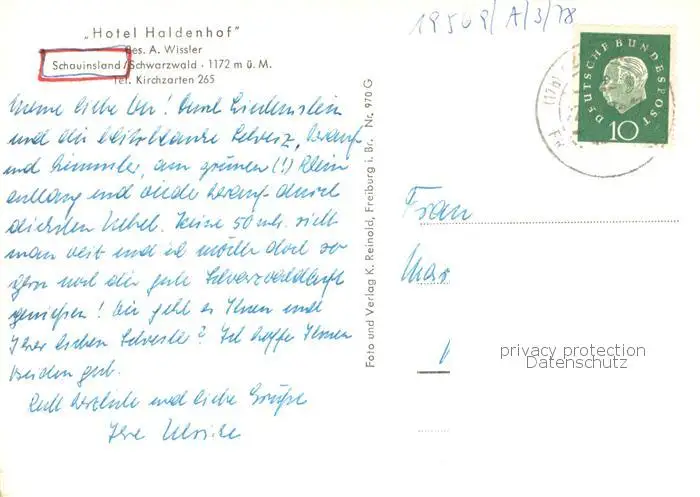 „Hotel Haldenhof"
Bes. A. Wissler
Schauinsland/Schwarzwald · 1172 m ü. M.
Tel. Kirchzarten 265
Meine liebe! Durch Liechtenstein
und die Schweiz, herauf
und, am grünen (!) Rhein
entlang und wieder herauf durch
dichten Nebel. Keine 50 mtr. sieht
man weit und ich möchte doch so
gern noch die gute Schwarzwaldluft
genießen! Wie geht es Ihnen und
Ihrer lieben Schwester? Ich hoffe Ihnen
beiden gut.
Recht herzliche und liebe Grüße
Ihre Ulrike
Foto und Verlag K. Reinold, Freiburg i. Br. Nr. 970 G
19509/A/3/78
DEUTSCHE BUNDESPOST
10
(17b)
Frau
Mar
privacy protection
Datenschutz